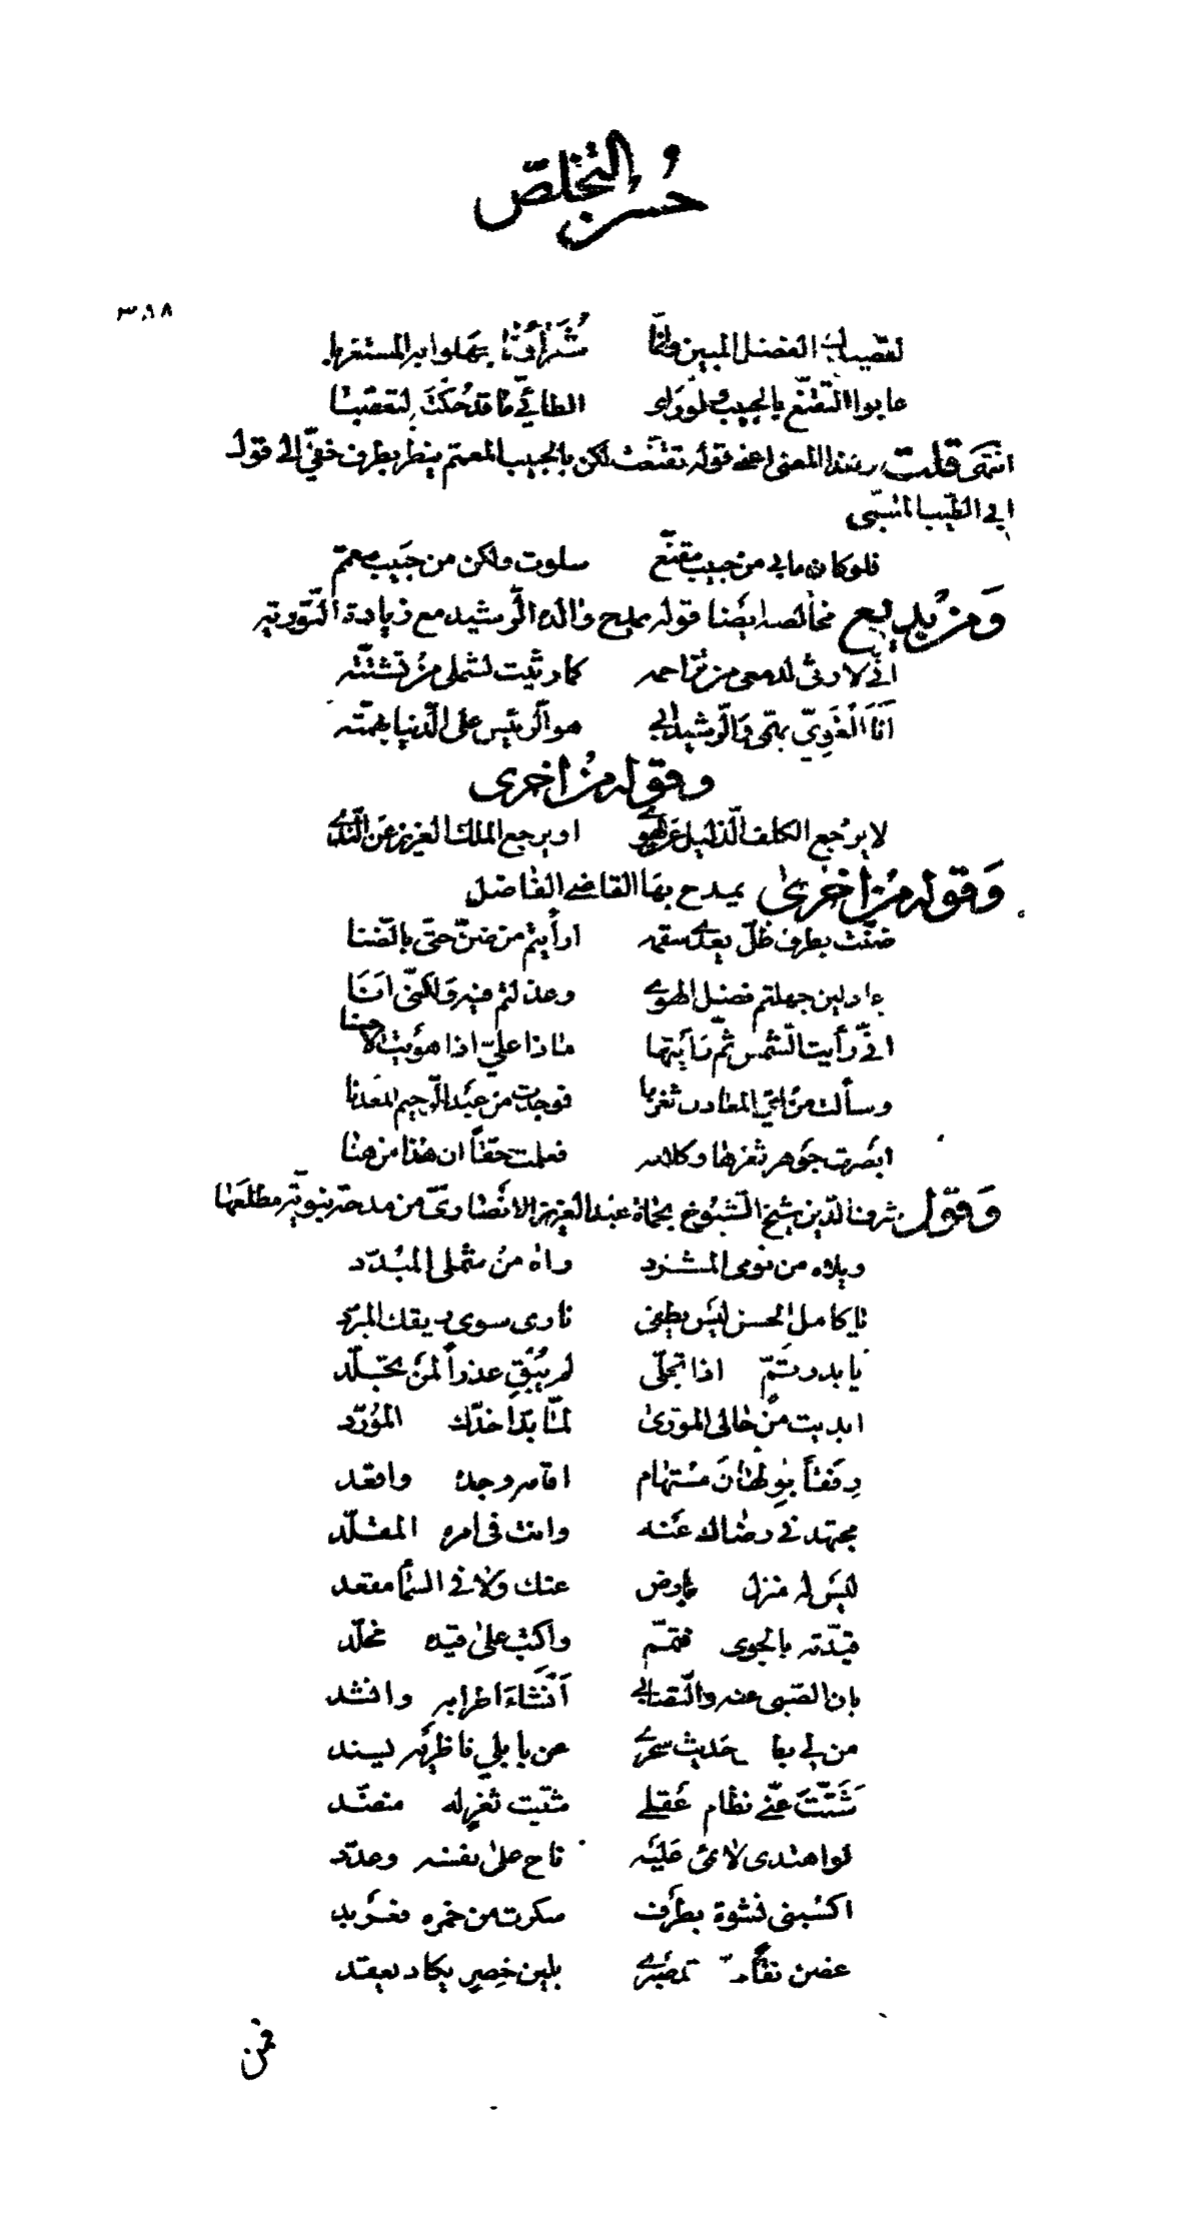 حُسْن التخلّص
٣٠٩٨
لقصبات الفضل المبين وانما شعراؤنا جهلوا به المستغربا
عابوا التقنّع بالحبيب ولو رأى الطائي ما قد حُكتَ لتعصّبا
انتهى قلت وهذا المعنى اعنى قوله تقنّعت لكن بالحبيب المعمّم ينظر بطرف خفىّ الى قول
ابى الطيّب المتنبّى
فلو كان ما بى من حبيب مقنّع سلوت ولكن من حَبيب معمّم
وَمن بديع مخالصه ايضا قوله يمدح والده الرّشيد مع زيادة التّورية
انّى لارثى لدمعى من تزاحمه كما رثيت لشملى من تشتّته
اَنَا الْغَوِيّ بهمّى وَالرّشيد ابى هو الرّئيس على الدّنيا بهمّته
وقوله من اخرى
لا يرجع الكلف الذليل عن الهوى او يرجع الملك العزيز عن النّدى
وَقوله من اخرى يمدح بها القاضى الفاضل
ضنّت بطرف ظلّ بعدى سقمه ارأيتم من ضنّ حتى بالضّنا
يا عاذلين جهلتم فضل الهوى وعذلتم فيه وَلكنّى اَنَا
انّى رأيت الشّمس ثمّ رَأيتها ماذا علىّ اذا هويت الاحسنا
وسألت من اىّ المعادن ثغرها فوجدت من عبد الرّحيم المعدنا
ابصرت جَوهر ثغرها وكلامه فعلمت حقّاً ان هذا من هنا
وَقول شرف الدّين شيخ الشّيُوخ بحماة عبد العزيز الانصارىّ من مدحة نبويّة مطلعها
ويلاه من نومى المشرّد واه من شملى المبدّد
يا كامل الحسن ليس يطفى نارى سوى ريقك المبرّد
يا بدر تَمّ اذا تجلّى لم يُبْقِ عذراً لمن تجلّد
ابديت من حالى المورّى لمّا بَدا خدّك المُورّد
رِفقاً بوِلْهَان مستهام اقامه وجده واقعد
مجتهد فى رضاك عنه وانت فى امره المقلّد
ليس له منزل بارض عنك وَلا فى السما مقعد
قيّدته بالجوى فتمّم واكتب على قيده مخلّد
بان الصّبى عنه والتّصابى اَنْشَاءَ اطرابه وانشد
من لى حديث سحرى عن بابلى ناظريْه يسند
شَتّتَ عنّى نظام عَقلى شتيت ثغرٍ له منضّد
لو اهتدى لائمى عَليْه ناح على نفسه وعدّد
اكسبنى نشوة بطرف سكرت من خمره فعربد
غصن نقاً صبرى بلين خصر يكاد يعقد
فمن